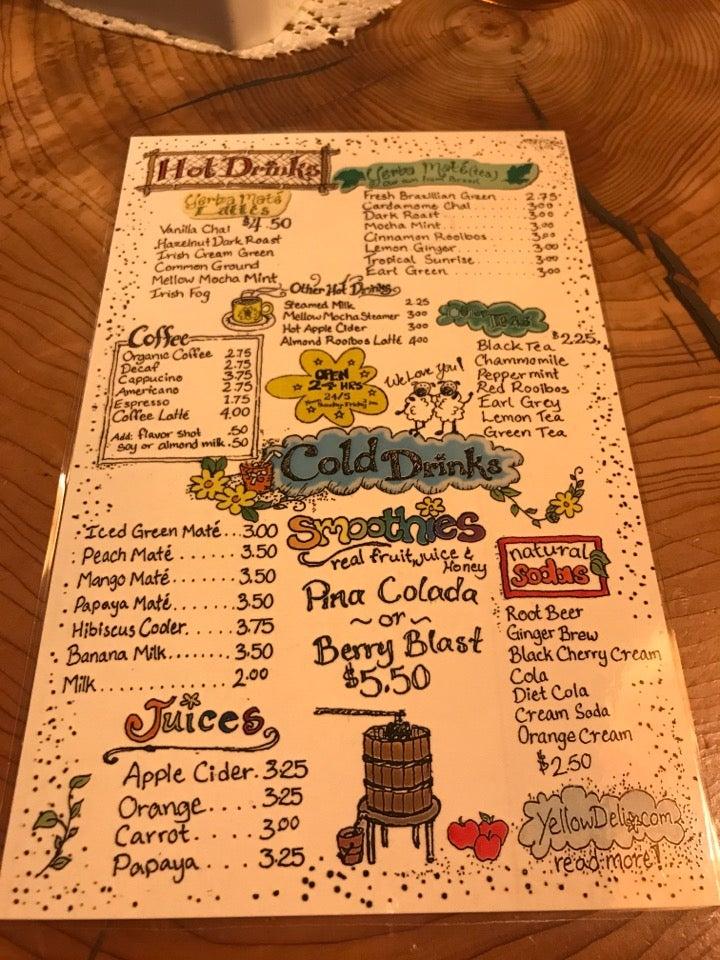 Hot Drinks
Yerba Maté Lattés
$4.50
Vanilla Chai
Hazelnut Dark Roast
Irish Cream Green
Common Ground
Mellow Mocha Mint
Irish Fog
Yerba Maté (tea)
Our own from Brazil
Fresh Brazilian Green 2.75
Cardamome Chai 3.00
Dark Roast 3.00
Mocha Mint 3.00
Cinnamon Rooibos 3.00
Lemon Ginger 3.00
Tropical Sunrise 3.00
Earl Green 3.00
Other Hot Drinks
Steamed Milk 2.25
Mellow Mocha Steamer 3.00
Hot Apple Cider 3.00
Almond Rooibos Latté 4.00
Coffee
Organic Coffee 2.75
Decaf 2.75
Cappucino 3.75
Americano 2.75
Espresso 1.75
Coffee Latté 4.00
Add: flavor shot .50
soy or almond milk .50
OPEN
24 HRS
24/5
We Love You!
Other Teas
$2.25
Black Tea
Chammomile
Peppermint
Red Rooibos
Earl Grey
Lemon Tea
Green Tea
Cold Drinks
Iced Green Maté...3.00
Peach Maté......3.50
Mango Maté.....3.50
Papaya Maté.....3.50
Hibiscus Cooler......3.75
Banana Milk.......3.50
Milk..............2.00
Smoothies
real fruit, juice &
Honey
Pina Colada
~or~
Berry Blast
$5.50
natural
Sodas
Root Beer
Ginger Brew
Black Cherry Cream
Cola
Diet Cola
Cream Soda
Orange Cream
$2.50
Juices
Apple Cider.3.25
Orange....3.25
Carrot....3.00
Papaya....3.25
YellowDeli.com
read more!